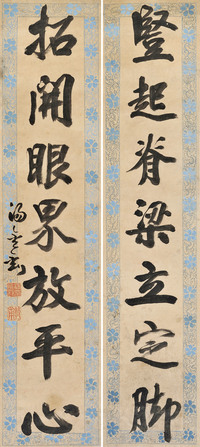 豎起脊梁立定脚
拓開眼界放平心